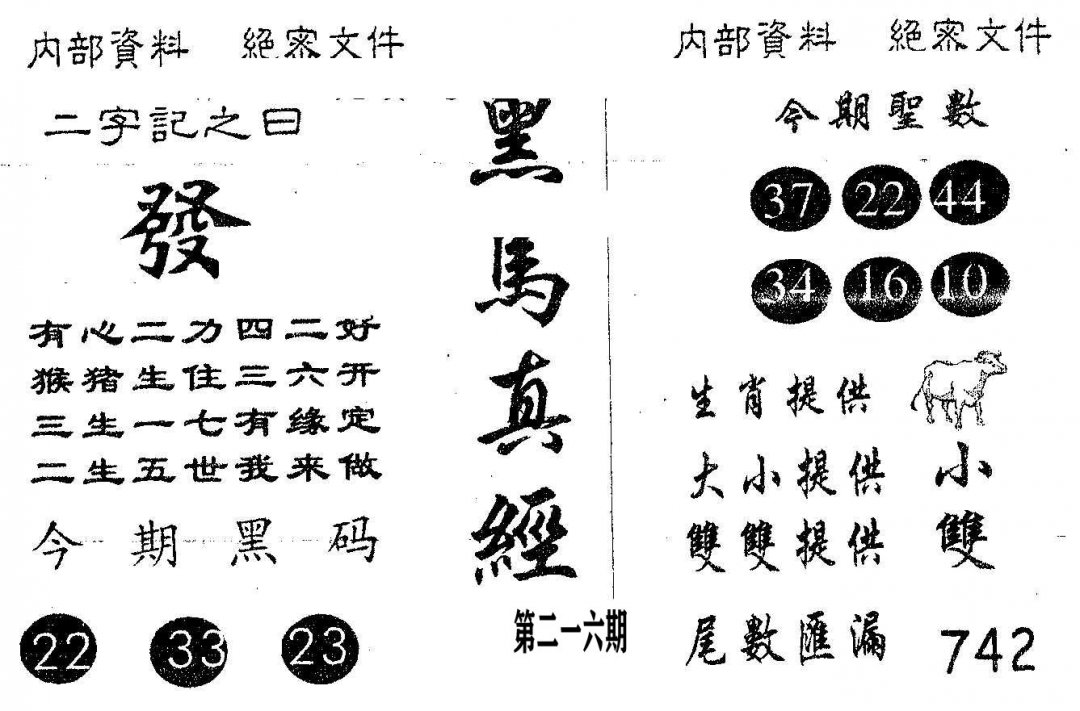 内部資料 絕密文件
二字記之曰
發
有心二力四二好
猴猪生住三六开
三生一七有缘定
二生五世我来做
今期黑码
22 33 23
黑馬真經
第二一六期
内部資料 絕密文件
今期聖數
37 22 44
34 16 10
生肖提供
大小提供 小
雙雙提供 雙
尾數匯漏 742